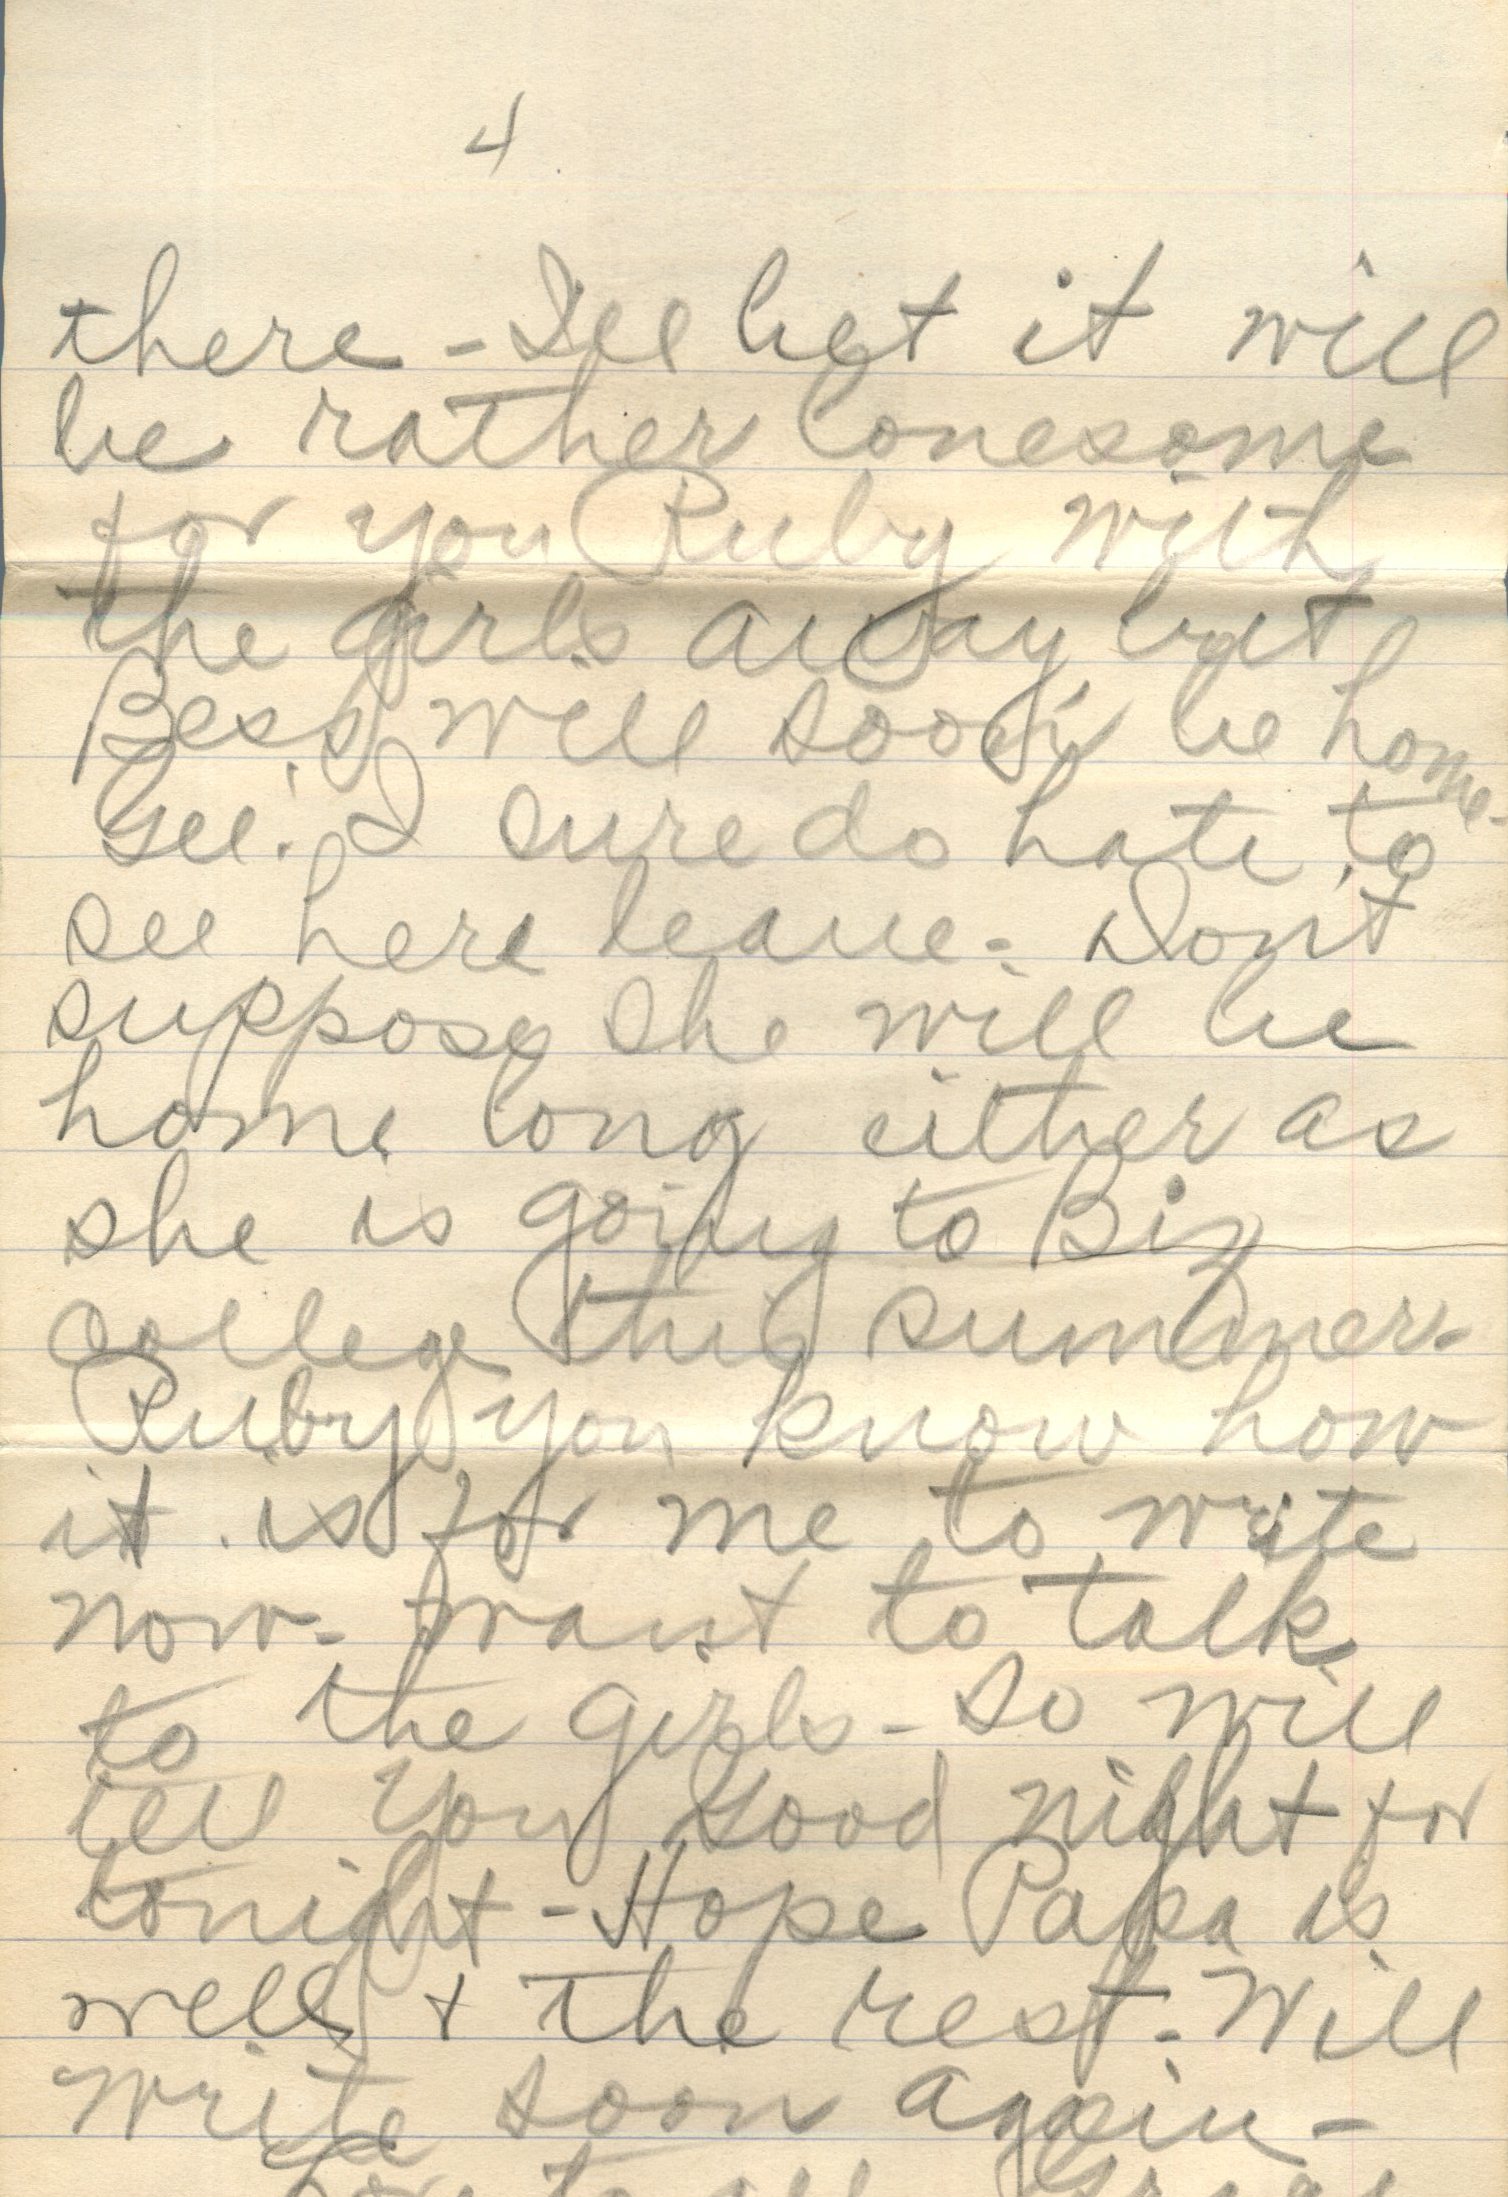 4
there - I'll bet it will
be rather lonesome
for you Ruby with
the girls away, but
Bess will soon be home-
Gee! I sure do hate to
see here leave - Dont
suppose she will be
home long either as
she is going to Biz
College this summer.
Ruby you know how
it is for me to write
now - want to talk
to the girls - So will
tell you good night for
tonight - Hope Papa is
well + the rest - Will
write soon again -
Love to all